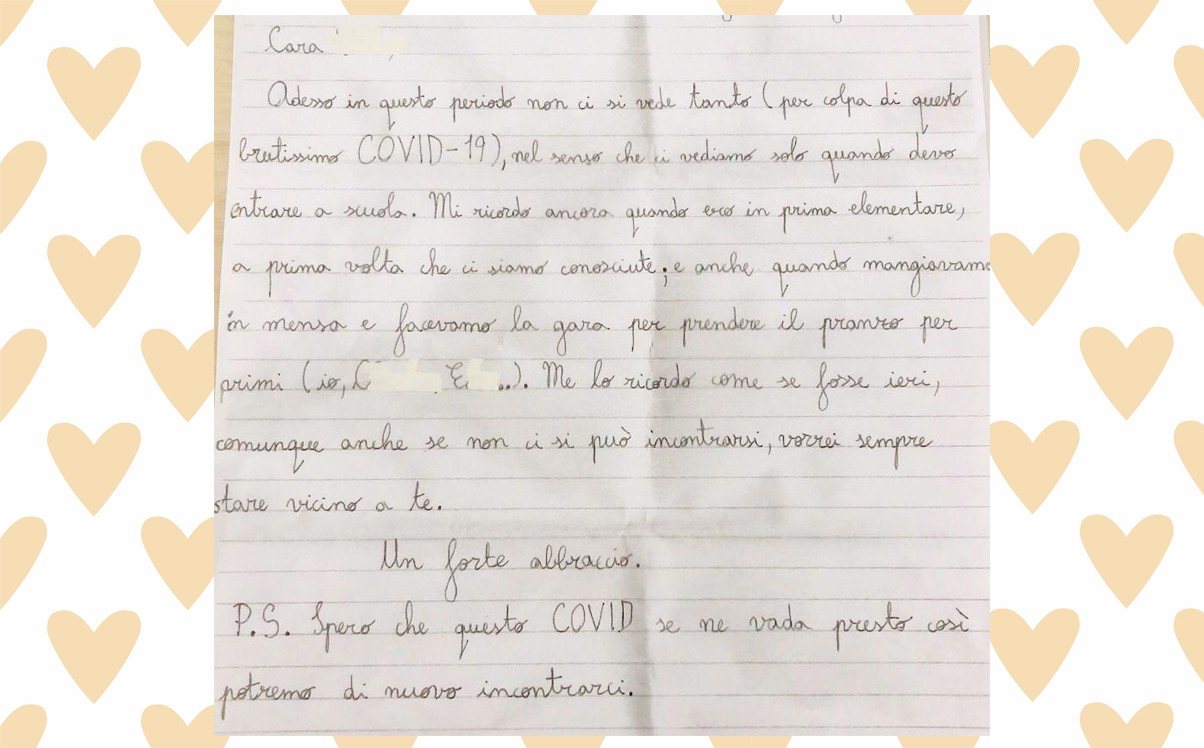 Cara
Adesso in questo periodo non ci si vede tanto (per colpa di questo
brutissimo COVID-19), nel senso che ci vediamo solo quando devo
entrare a scuola. Mi ricordo ancora quando ero in prima elementare,
a prima volta che ci siamo conosciute; e anche quando mangiavamo
in mensa e facevamo la gara per prendere il pranzo per
primi (io, ...). Me lo ricordo come se fosse ieri,
comunque anche se non ci si può incontrarsi, vorrei sempre
stare vicino a te.
Un forte abbraccio.
P.S. Spero che questo COVID se ne vada presto così
potremo di nuovo incontrarci.